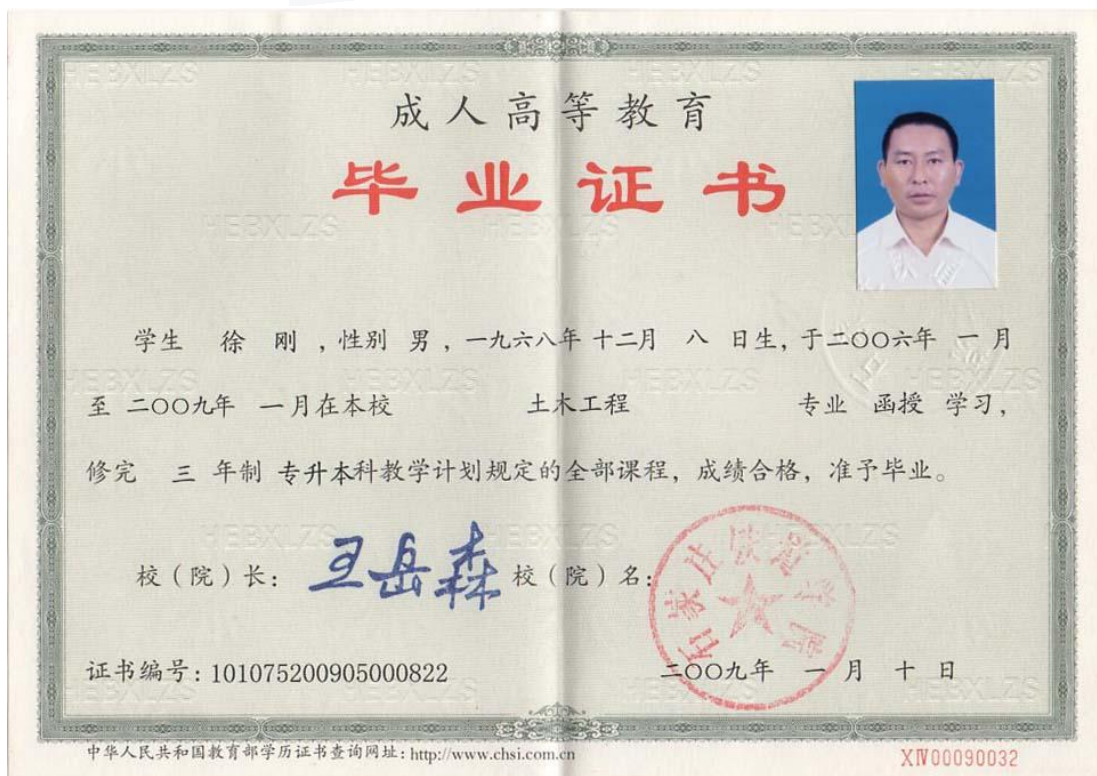 成人高等教育
毕业证书
学生 徐 刚 ，性别 男，一九六八年 十二月 八 日生，于二〇〇六年 一 月
至 二〇〇九年 一月在本校 土木工程 专业 函授 学习，
修完 三 年制 专升本科教学计划规定的全部课程，成绩合格，准予毕业。
校（院）长： 王岳森 校（院）名：
石家庄铁道学院
证书编号：101075200905000822 二〇〇九年 一 月 十 日
中华人民共和国教育部学历证书查询网址：http://www.chsi.com.cn XⅣ00090032
HEBXLZS